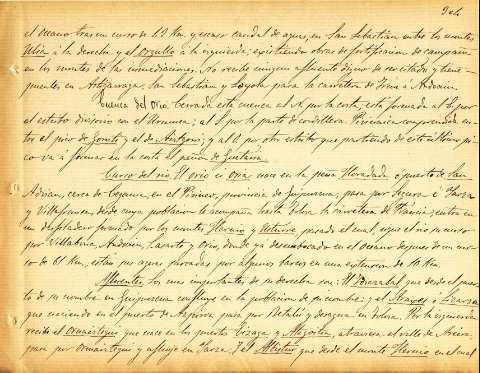 204
el Oceano tras un curso de 43 Km y escaso caudal de aguas, en San Sebastian entre los montes
Ulia á la derecha y el Orgullo á la izquierda; existiendo obras de fortificacion de campaña
en los montes de las inmediaciones. No recibe ningun afluente digno de ser citado y tiene
puentes en Astigarraga, San Sebastian y Loyola para la carretera de Irún á Andoain.
Cuenca del Orio. Cerrada esta cuenca al N. por la costa, esta formada al E. por
el estribo divisorio con el Urumea; al S. por la parte de cordillera Pirenaica comprendida en-
tre el pico de Gorriti y el de Aritzgorri; y al O. por otro estribo que partiendo de este último pi-
co va á formar en la costa el peñon de Guetaria.
Curso del rio. El Orio ú Oria nace en la peña Horadada ó puerto de San
Adrian, cerca de Cegama, en el Pirineo, provincia de Guipuzcoa; pasa por Segura é Isaza
y Villafranca, desde cuya poblacion le acompaña hasta Tolosa la carretera de Francia; entra en
un desfiladero formado por los montes Hernio y Uzturre pasado el cual, sigue el rio su curso
por Villabona, Andoain, Lasarte y Orio, donde ya desembocado en el Oceano despues de un cur-
so de 61 Km, estan sus aguas surcadas por algunos barcos en una extension de 16 Km.
Afluentes. Los mas importantes de su derecha son: El que desde el puer-
to de su nombre en Guipuzcoa confluye en la poblacion de su nombre; y el Araxes ó Lizarza
que naciendo en el puerto de Azpiroz pasa por Betelu y desagua en Tolosa. Por la izquierda
recibe el Ormaiztegui que nace en los puertos Eizaga y, atraviesa el valle de
pasa por Ormaiztegui y afluye en Isaza. Y el Albistur que desde el monte Hernio en el cual